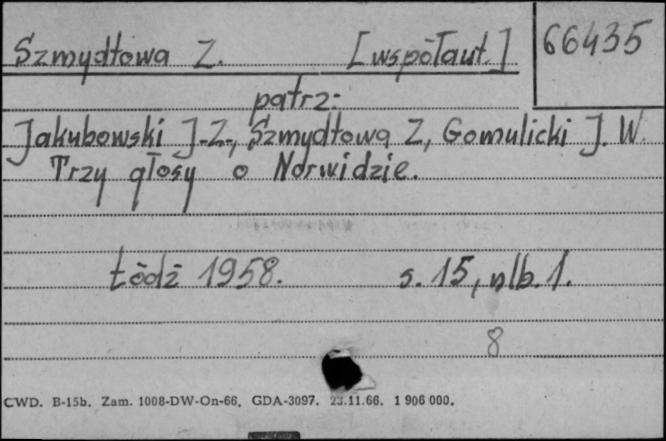 Szmydtowa Z. [współaut.] 66435
patrz:
Jakubowski J.Z., Szmydtowa Z., Gomulicki J. W.
Trzy głosy o Norwidzie.
Łódź 1958. s. 15, nlb. 1.
8
CWD. B-15b. Zam. 1008-DW-On-66. GDA-3097. 23.11.66. 1 906 000.